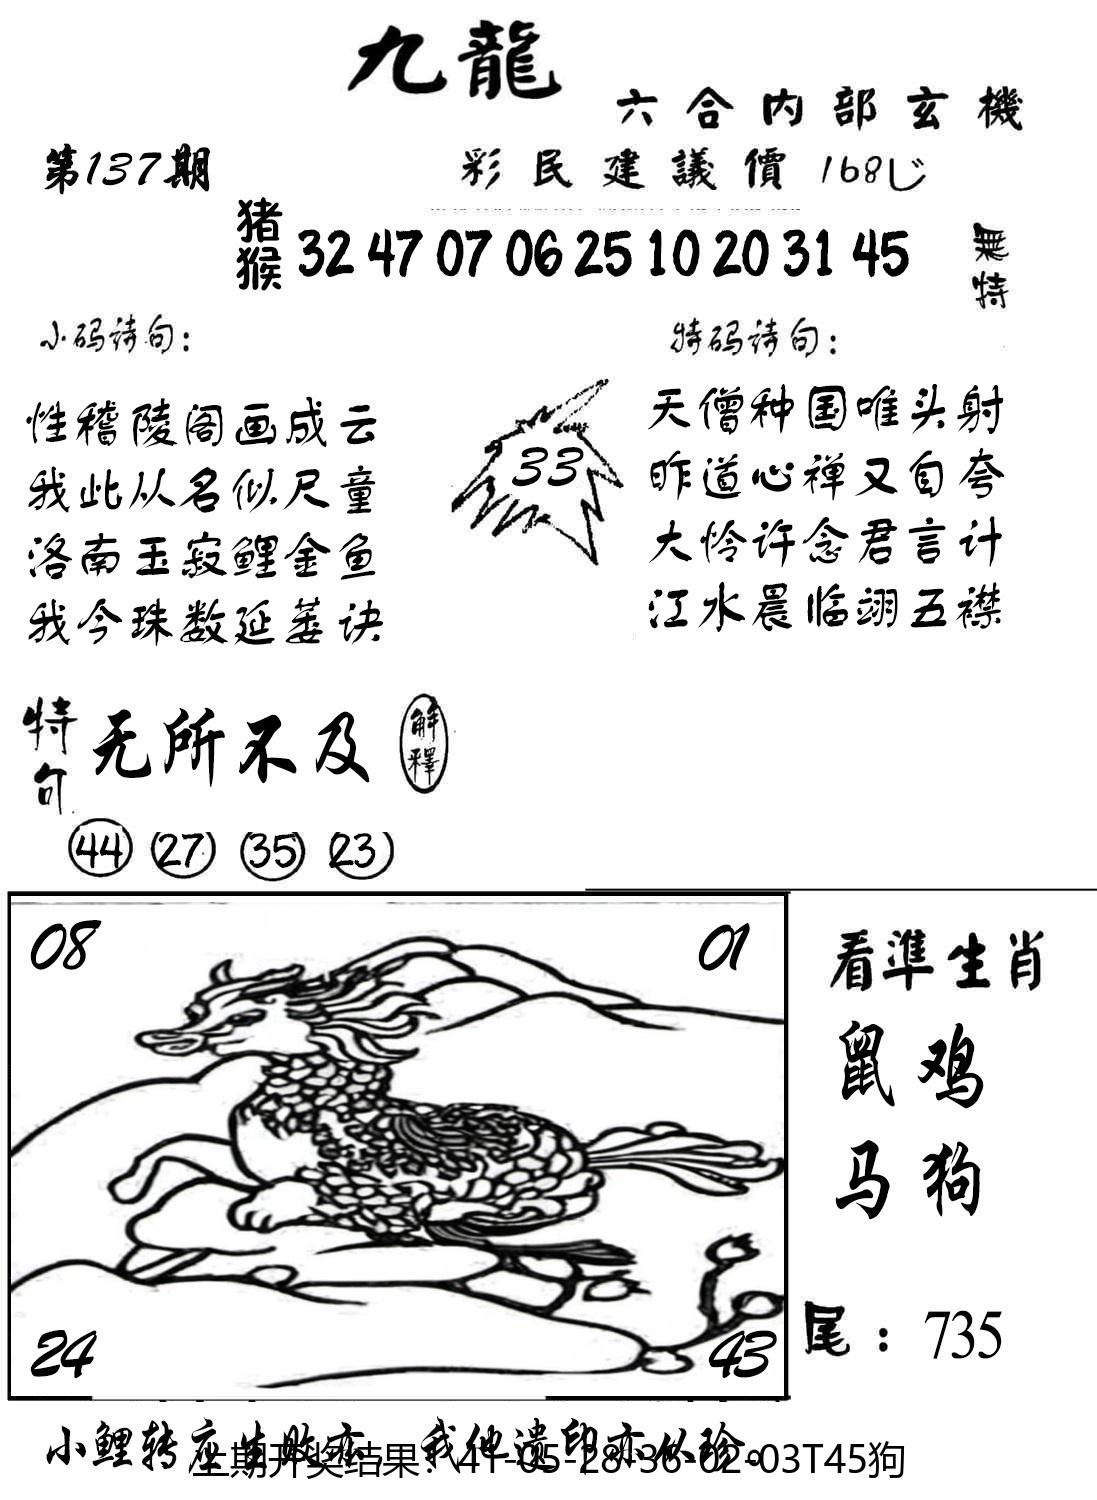 九龍
六合内部玄機
第137期
彩民建議價 168
猪猴 32 47 07 06 25 10 20 31 45
無特
小码诗句：
特码诗句：
性稽陵阁画成云
我此从名似尺童
洛南玉寂鲤金鱼
我今珠数延萎诀
33
天僧种国唯头射
昨道心禅又自夸
大怜许念君言计
江水晨临翊五襟
特句 无所不及 解釋
44 27 35 23
08 01
24 43
看準生肖
鼠鸡
马狗
尾：735
小鲤转座生败亦 我他遗印亦从珍。
上期开奖结果：41-05-28-36-02-03T45狗